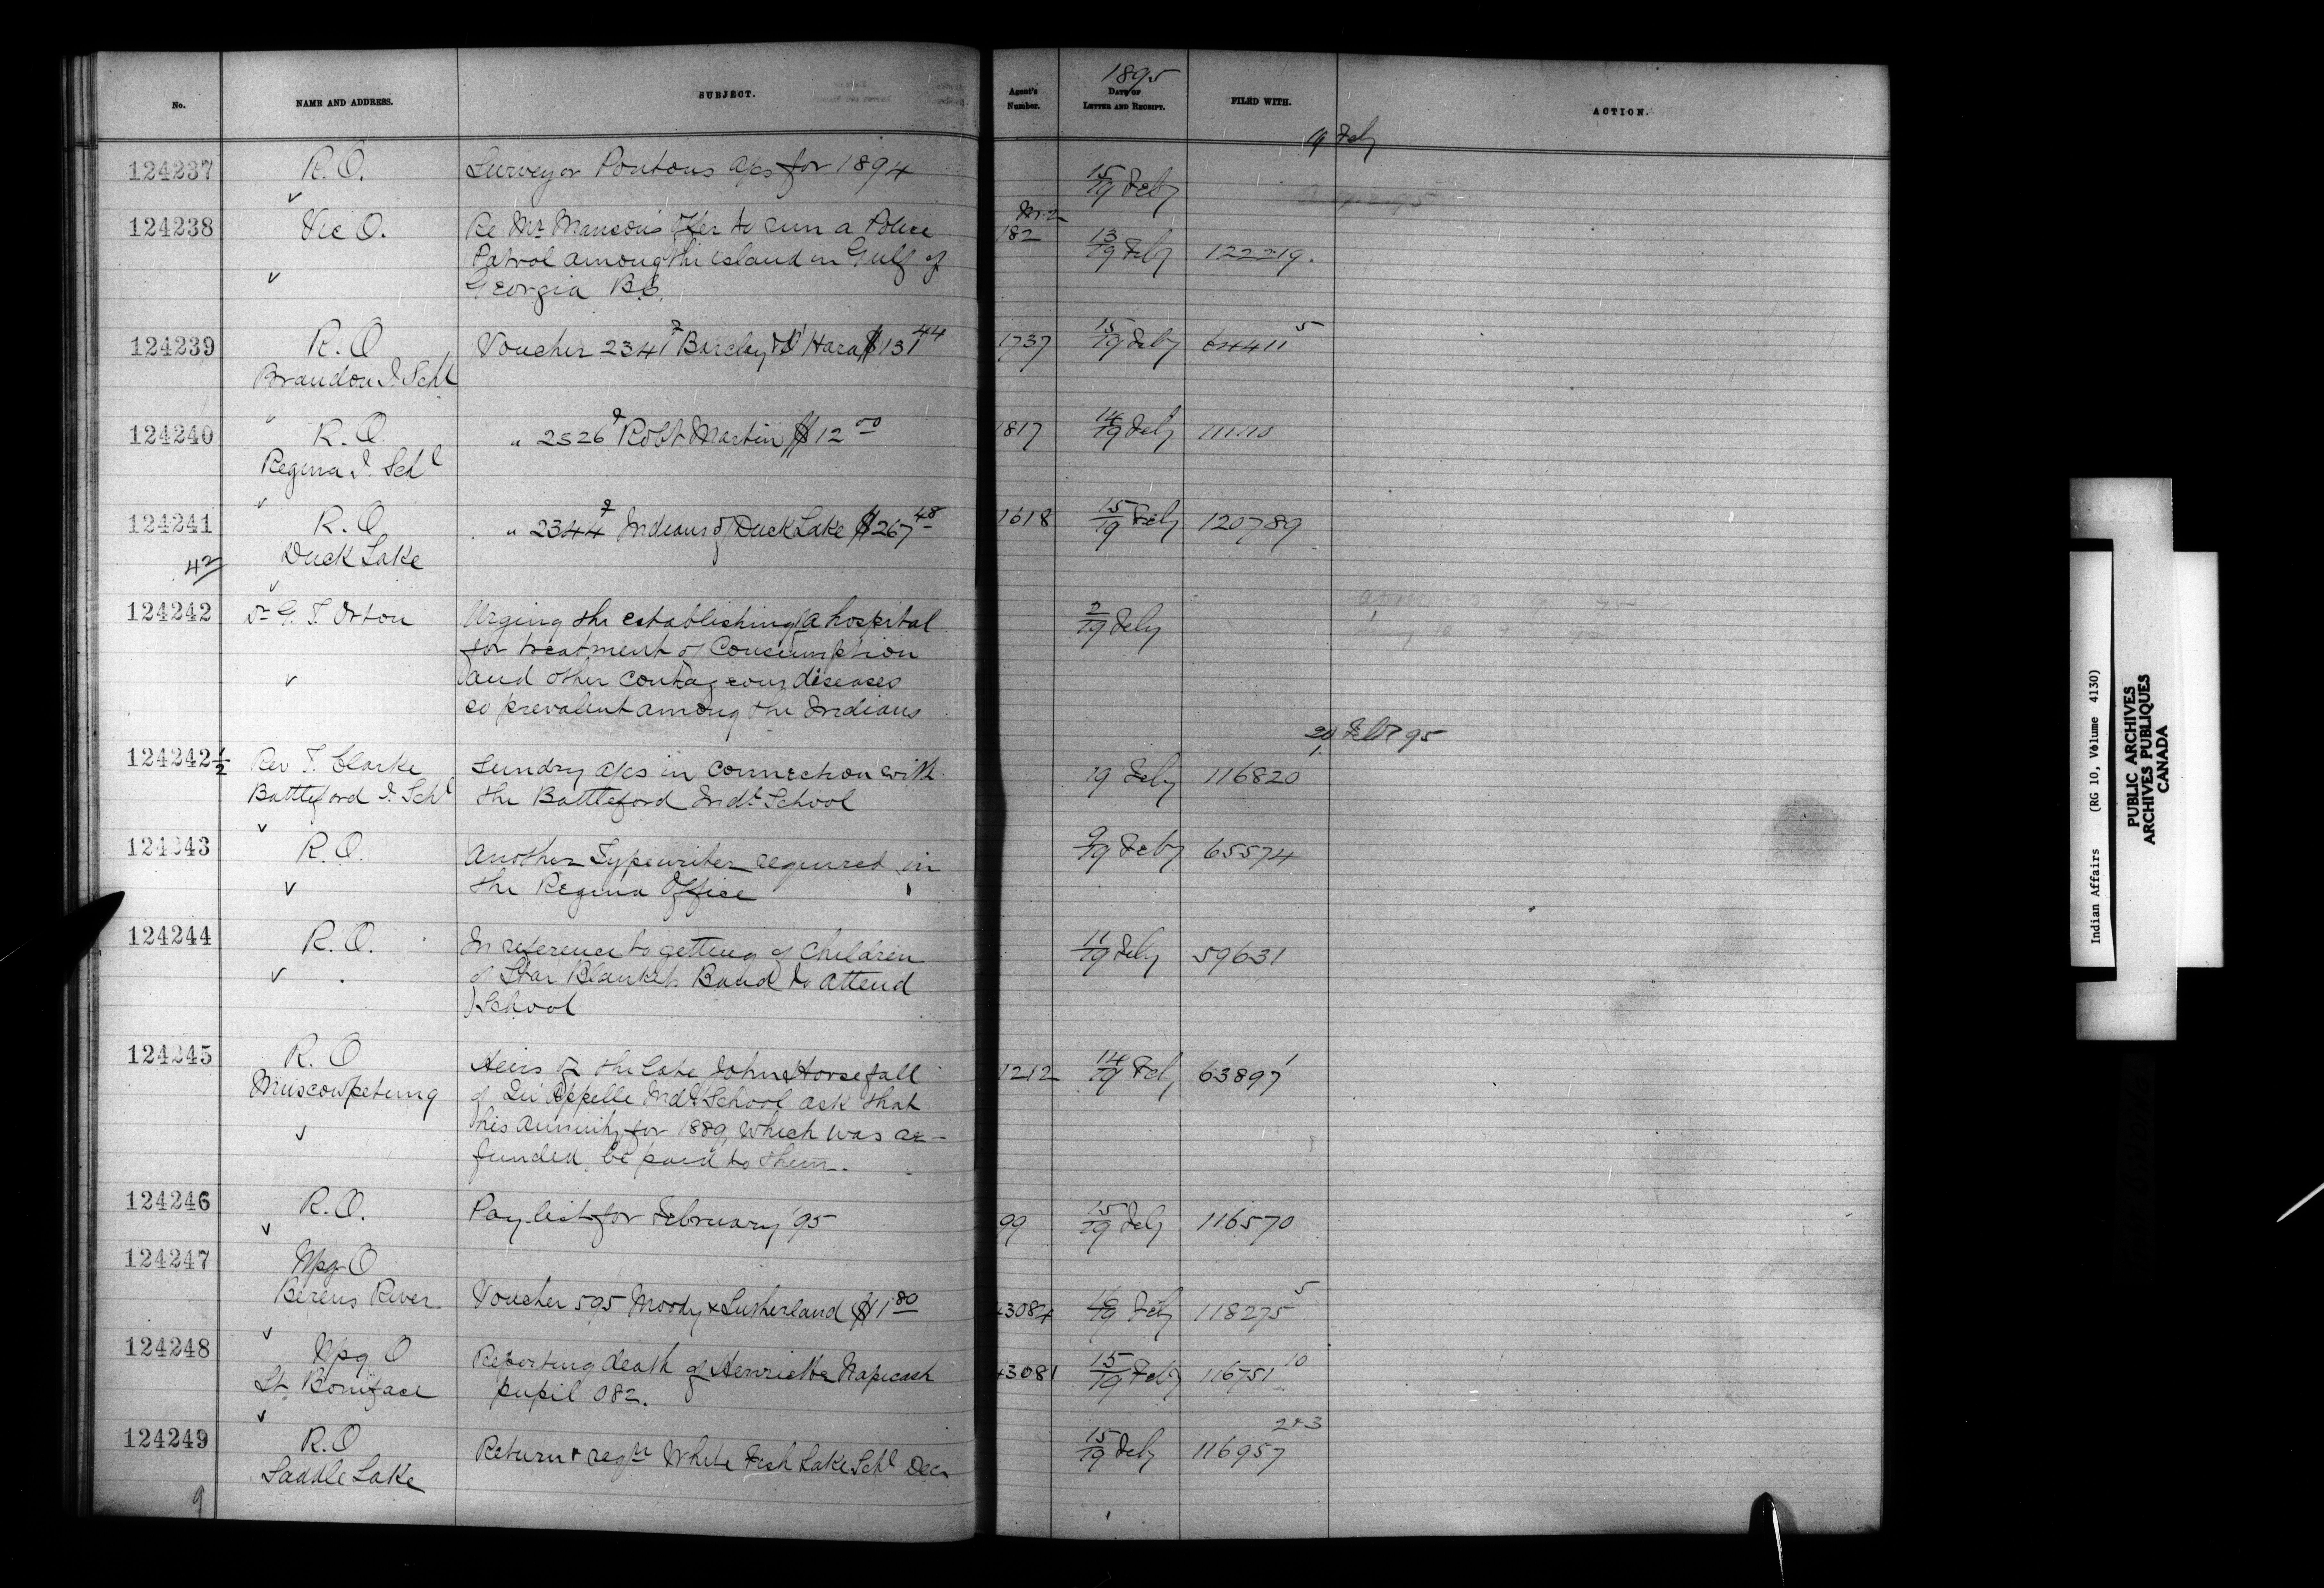 No. NAME AND ADDRESS. SUBJECT. Agent's Number. 1895 DATE OF LETTER AND RECEIPT. FILED WITH. ACTION.
19 Feby
124237 R.O. Surveyor Pontons a/cs for 1894 15/19 Feby
124238 Vic O. Re Mr Manson's offer to run a Police 182 13/19 Feby 122219.
Patrol among the island in Gulf of
Georgia B.C.
124239 R.O Voucher 2341 Barclay & O'Hara $131 44 1737 15/19 Feby 64411 5
Brandon I. Schl
124240 R.O " 2326 Robt Martin $12 00 1817 14/19 Feby
Regina I. Schl
124241 R.O " 2344 Indians of Duck Lake $267 48 1618 15/19 Feby 120789
42 Duck Lake
124242 Dr G. T. Orton Urging the establishing a hospital 2/19 Feby
for treatment of Consumption
and other contageous diseases
so prevalent among the Indians
20 Feby 95
124242½ Rev T. Clarke Sundry a/cs in connection with 19 Feby 116820
Battleford I. Schl the Battleford Indl School
124243 R.O. Another Typewriter required in 9/19 Feby 65574
the Regina Office
124244 R.O. In reference to getting of Children 11/19 Feby 59631
of Star Blankets Band to attend
School
124245 R.O Heirs of the late John Horsefall 1212 14/19 Feby 63897 1
Muscowpetung of Qu'Appelle Indl School ask that
his annuity for 1889, which was re-
funded, be paid to them.
124246 R.O. Pay list for February '95 99 15/19 Feby 116570
124247 Wpg O
Berens River Voucher 595 Moody & Sutherland $1 80 43084 16/19 Feby 118275 5
124248 Wpg O Reporting death of Henriette Napicash 43081 15/19 Feby 116751 10
St. Boniface pupil 082.
124249 R.O Return & reqn White Fish Lake Schl Decr 15/19 Feby 116957 2&3
Saddle Lake
9
Indian Affairs (RG 10, Volume 4130)
PUBLIC ARCHIVES
ARCHIVES PUBLIQUES
CANADA